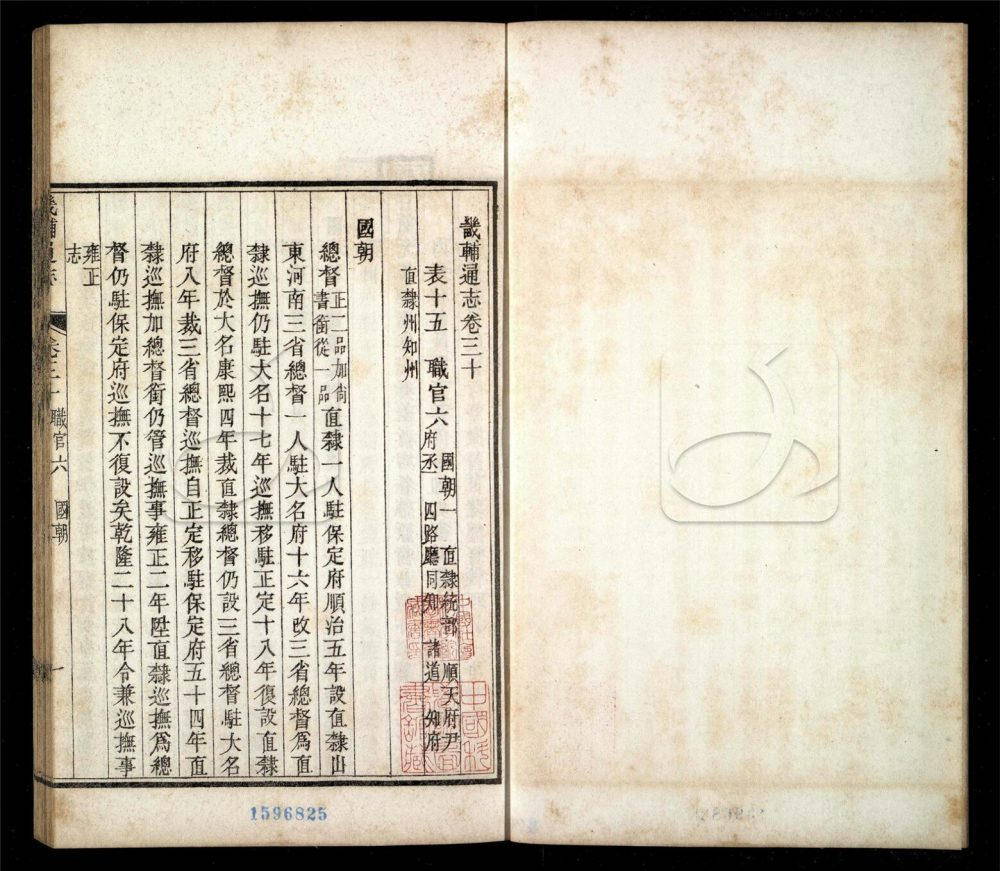 畿輔通志卷三十
表十五 職官六 國朝一 直隸統部 順天府尹
府丞 四路廳同知 諸道 知府
直隸州知州
國朝
總督 正二品加尙
書銜從一品 直隸一人駐保定府順治五年設直隸山
東河南三省總督一人駐大名府十六年改三省總督爲直
隸巡撫仍駐大名十七年巡撫移駐正定十八年復設直隸
總督於大名康熙四年裁直隸總督仍設三省總督駐大名
府八年裁三省總督巡撫自正定移駐保定府五十四年直
隸巡撫加總督銜仍管巡撫事雍正二年陞直隸巡撫爲總
督仍駐保定府巡撫不復設矣乾隆二十八年令兼巡撫事
雍正
志
畿輔通志 卷三十 職官六 國朝 一
1596825